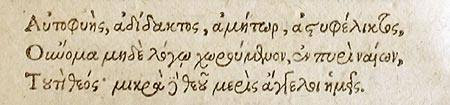 Αὐτοφυὴς, ἀδίδακτος, ἀμήτωρ, ἀστυφέλικτος,
Οὔνομα μηδὲ λόγῳ χωρούμενον, ἐν πυρὶ ναίων,
Τουτὶ θεός· μικρὰ δὲ θεοῦ μερὶς ἄγγελοι ἡμεῖς.